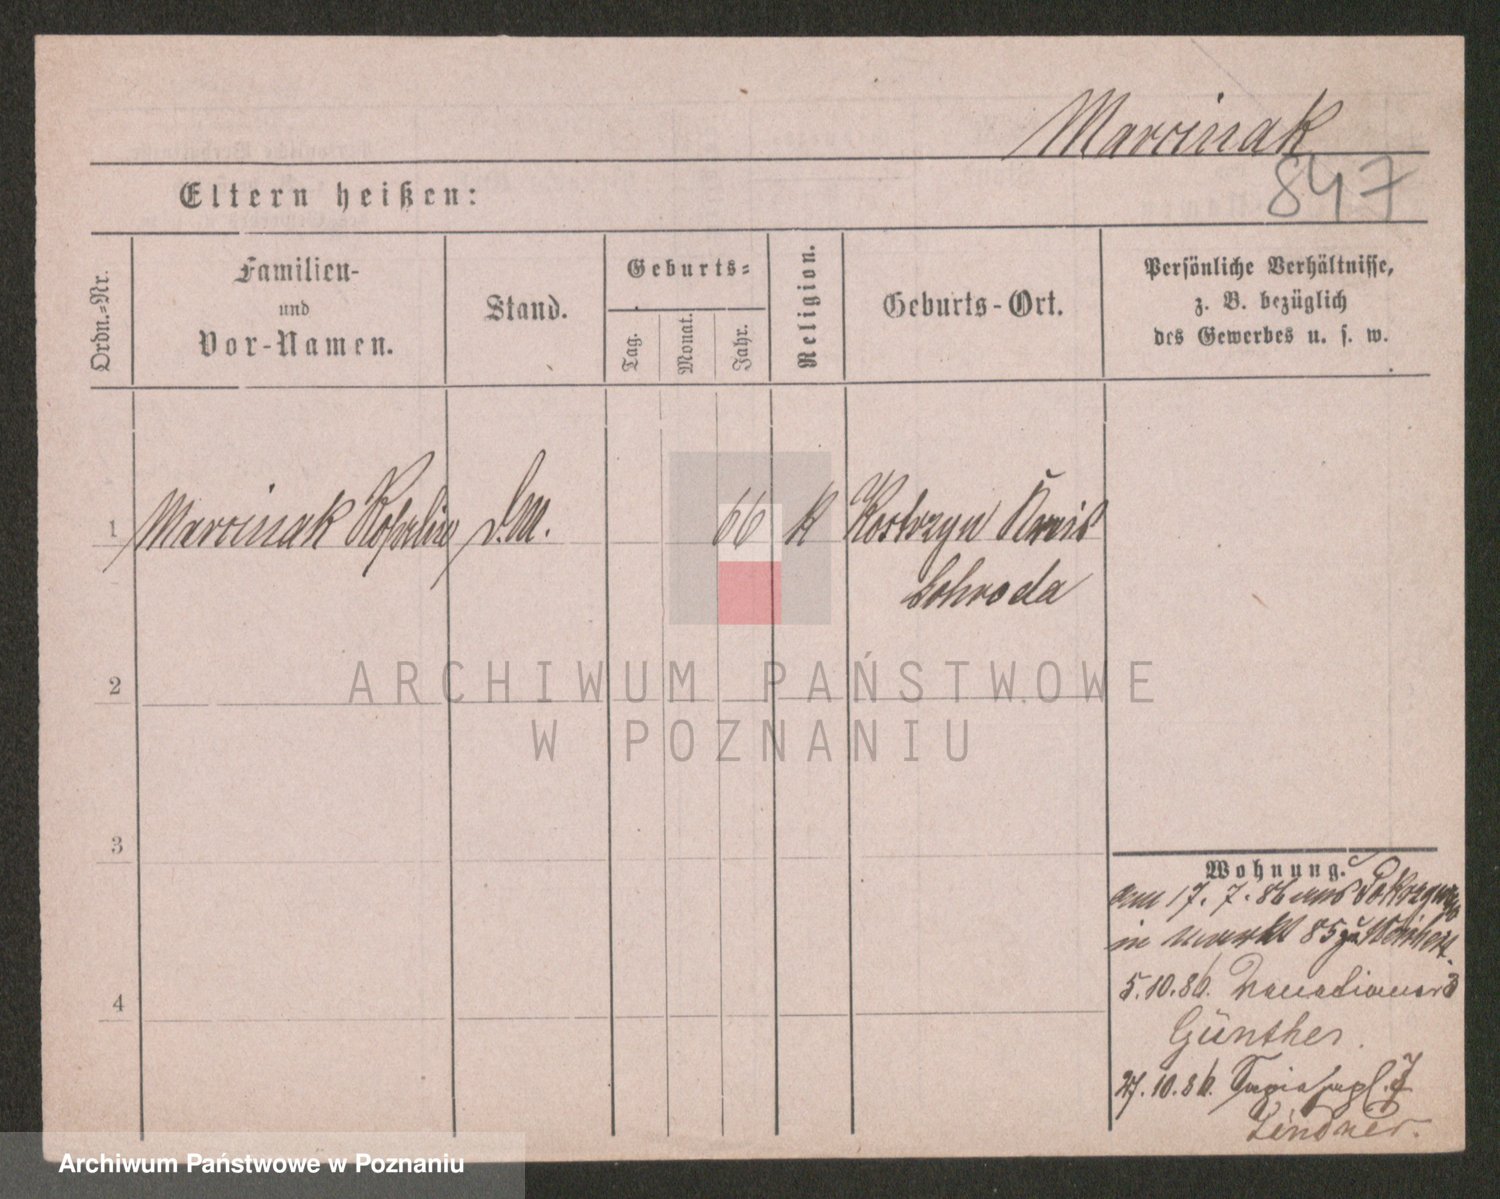 Marcinak
847
Eltern heißen:
Ordn.=Nr.
Familien-
und
Vor-Namen.
Stand.
Geburts=
Tag.
Monat.
Jahr.
Religion.
Geburts-Ort.
Persönliche Verhältnisse,
z. B. bezüglich
des Gewerbes u. s. w.
1 Marcinak d.M. 66 k Kostrzyn Kreis
Schroda
ARCHIWUM PAŃSTWOWE
W POZNANIU
2
3
4
Wohnung.
am 17. 7. 86 aus
in Markt 85 zu
5.10.86.
Günther.
27.10.86.
Lindner.
Archiwum Państwowe w Poznaniu